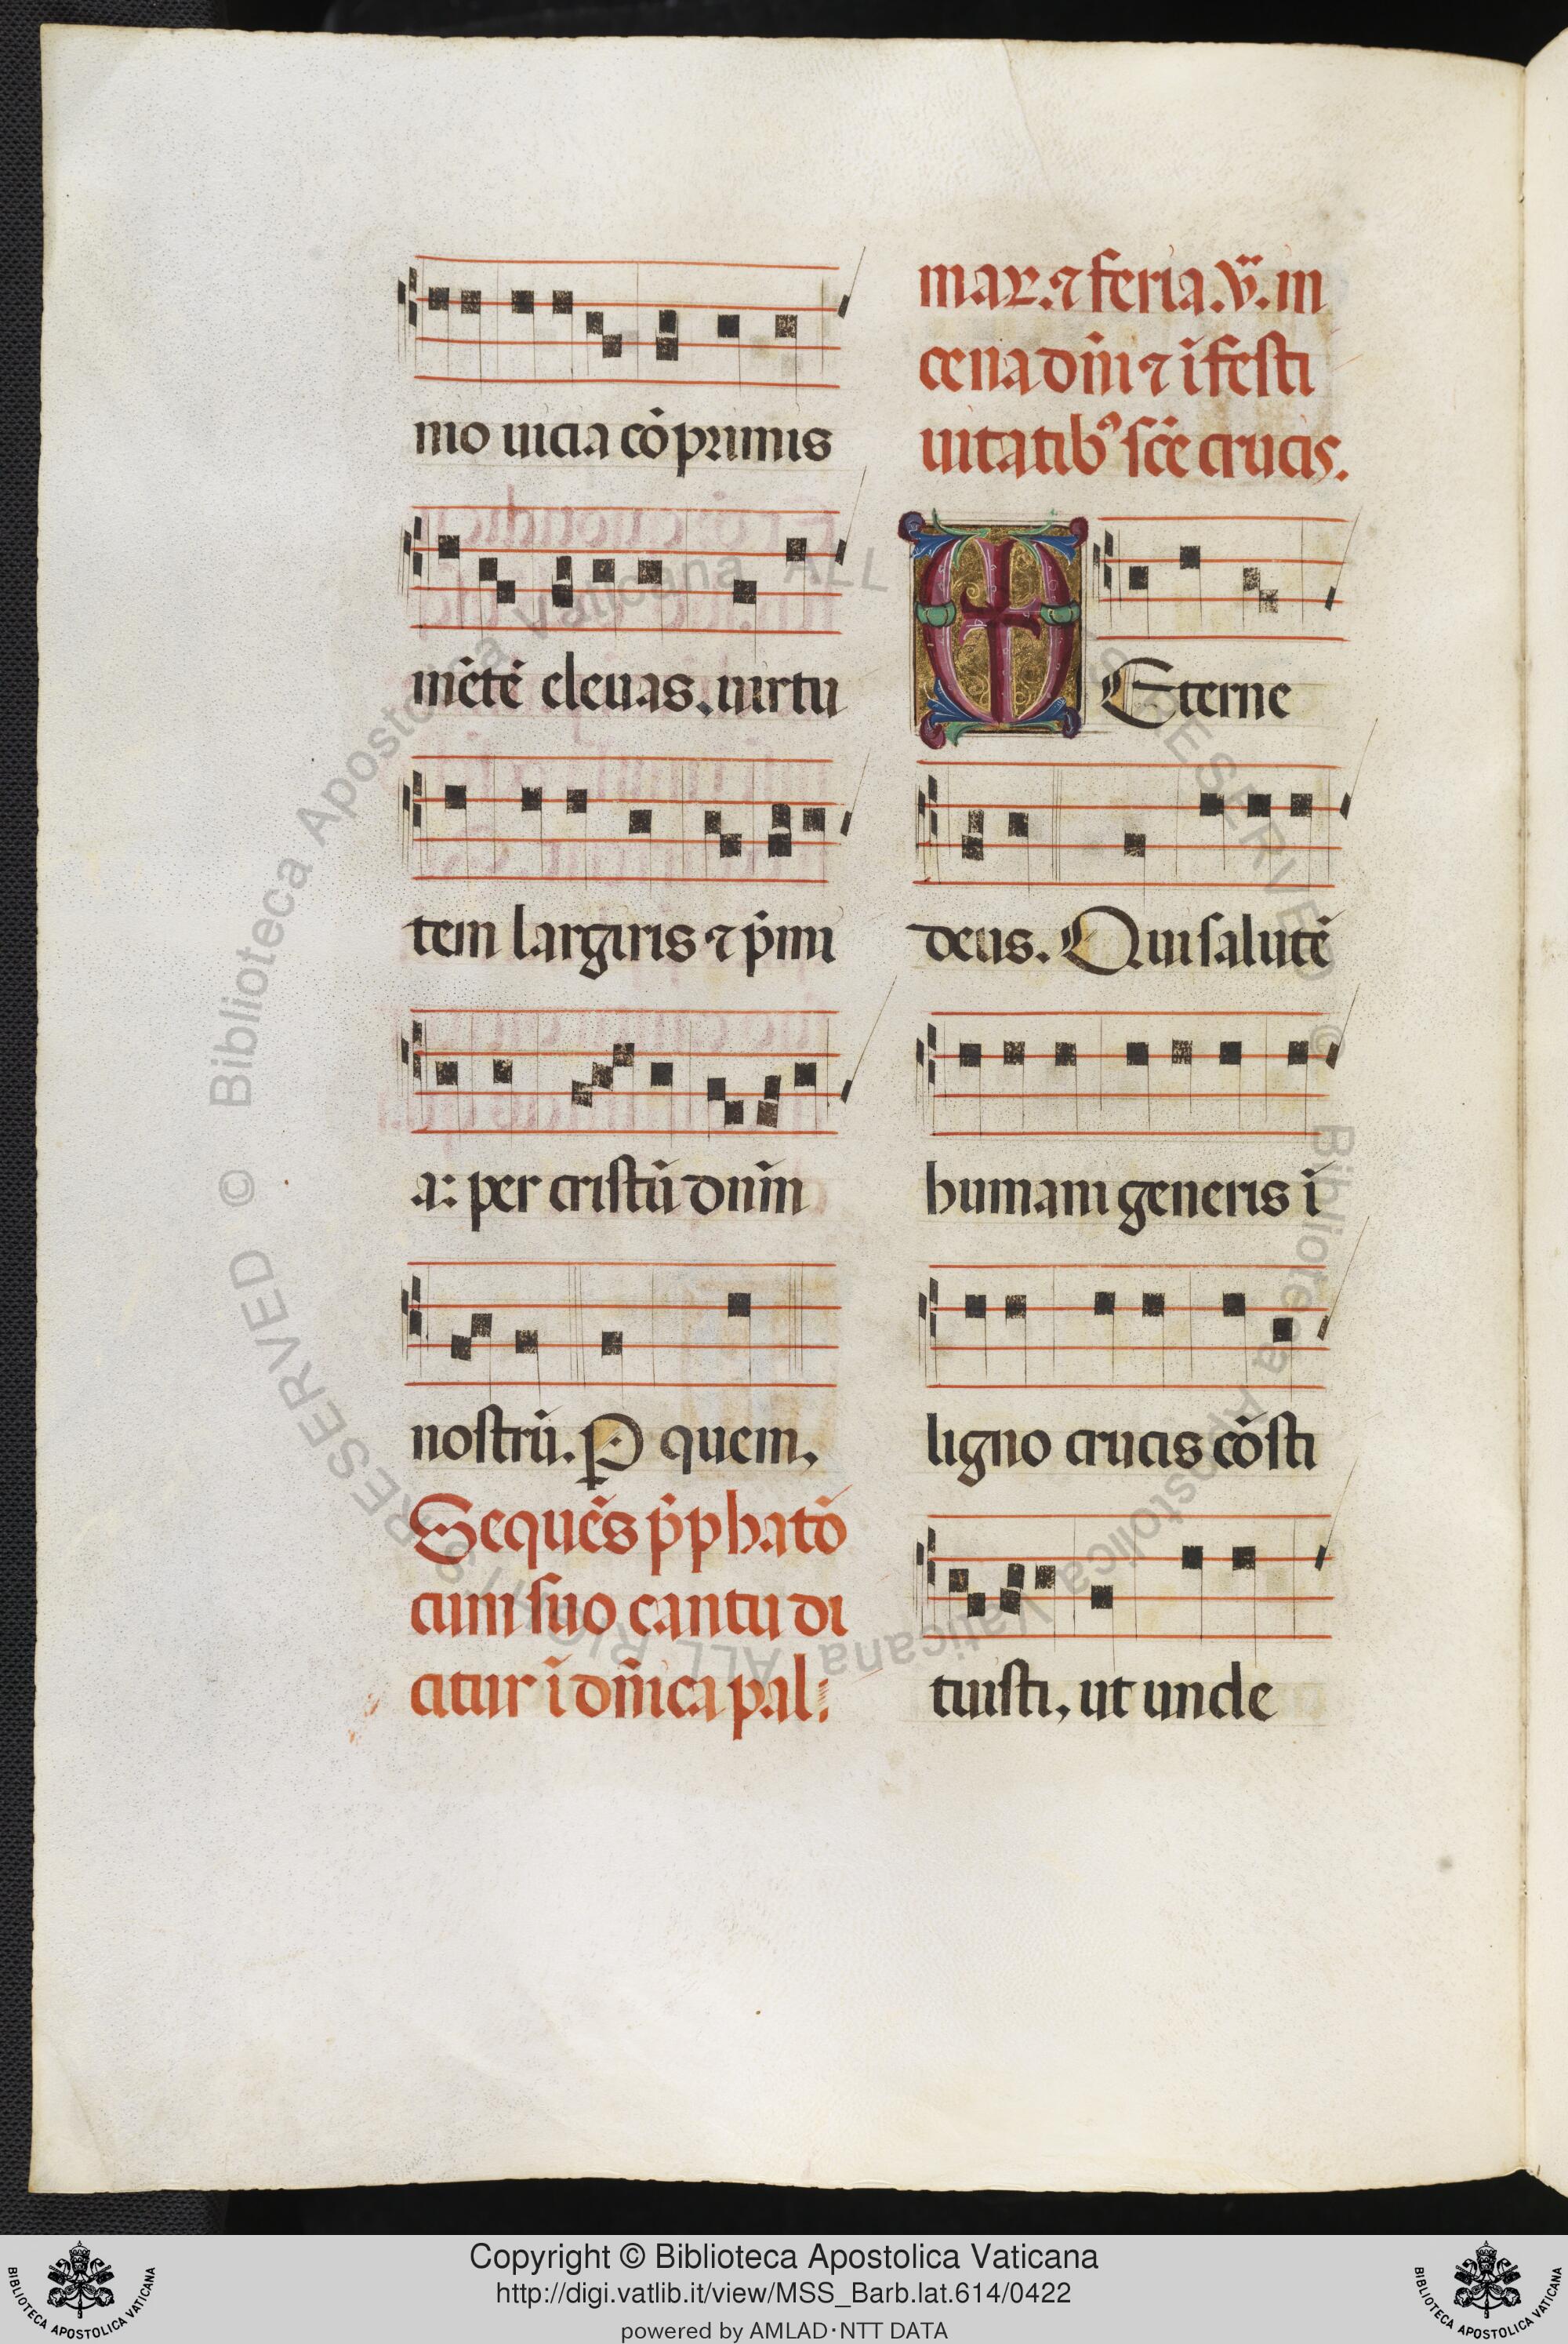 mo uicia cõprimis
mẽtẽ eleuas. uirtu
tem largiris ⁊ p̃mi
a: per cristũ dnm̃
nostrũ. P quem,
Sequẽs p̃phatõ
cum suo cantu di
citur ĩ dñica pal:
mar. ⁊ feria. v̈. in
cena dñi ⁊ ĩ festi
uitatibꝰ sc̃e crucis.
Eterne
deus. Qui salutẽ
humani generis ĩ
ligno crucis cõsti
tuisti, ut unde
© Biblioteca Apostolica Vaticana ALL RIGHTS RESERVED
Copyright © Biblioteca Apostolica Vaticana
http://digi.vatlib.it/view/MSS_Barb.lat.614/0422
powered by AMLAD·NTT DATA
BIBLIOTECA APOSTOLICA VATICANA
BIBLIOTECA APOSTOLICA VATICANA